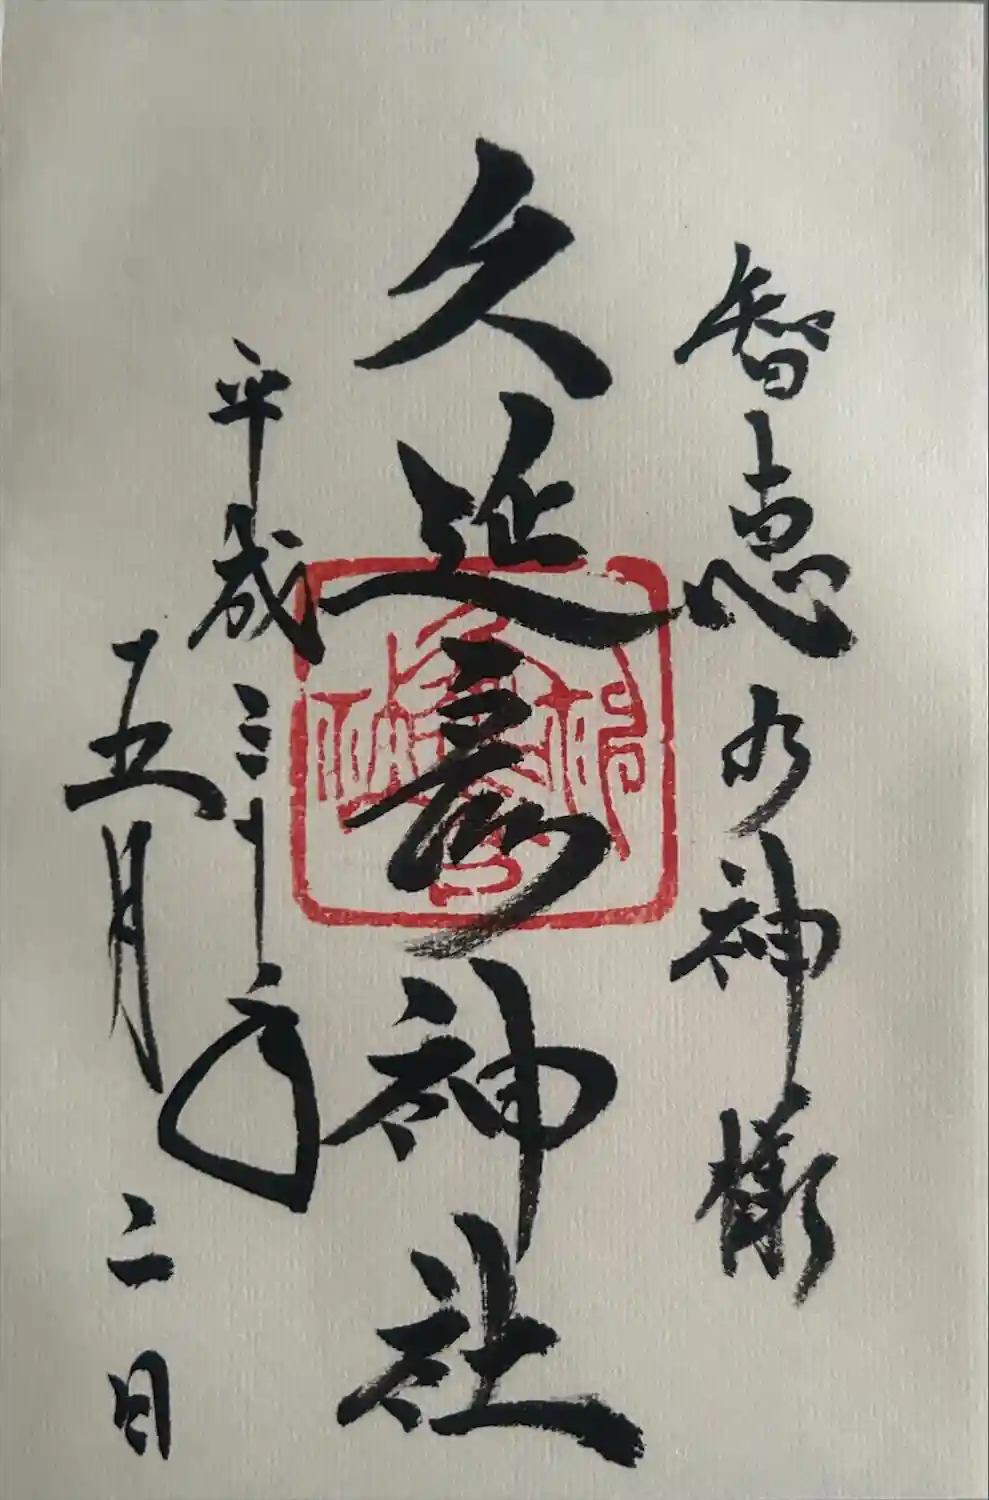 智恵の神様
久延彦神社
平成三十年
五月二日